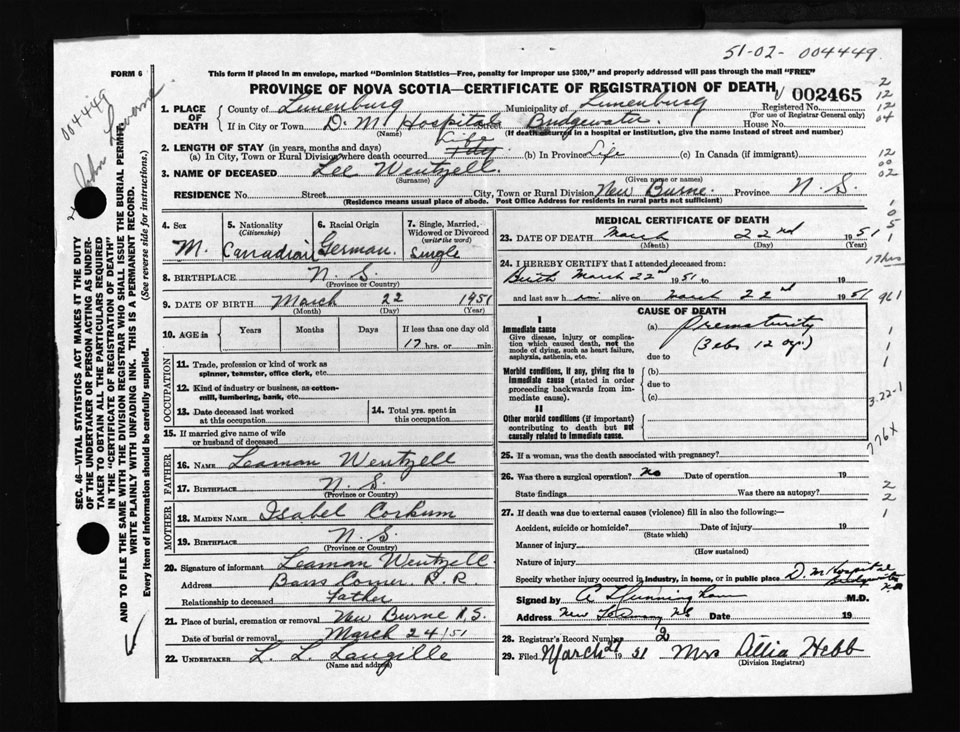 51-02- 004449
FORM 6
This form if placed in an envelope, marked "Dominion Statistics—Free, penalty for improper use $300," and properly addressed will pass through the mail "FREE"
PROVINCE OF NOVA SCOTIA—CERTIFICATE OF REGISTRATION OF DEATH 002465
1. PLACE OF DEATH
County of Lunenburg Municipality of Lunenburg Registered No.
(For use of Registrar General only)
If in City or Town D. M. Hospital Street Bridgewater. House No.
(Name) (If death occurred in a hospital or institution, give the name instead of street and number)
2. LENGTH OF STAY (in years, months and days)
(a) In City, Town or Rural Division where death occurred Life (b) In Province Life (c) In Canada (if immigrant)
3. NAME OF DECEASED Lee Wentzell.
(Surname) (Given name or names)
RESIDENCE No. Street City, Town or Rural Division New Burne. Province N. S.
(Residence means usual place of abode. Post Office Address for residents in rural parts not sufficient)
4. Sex
M.
5. Nationality
(Citizenship)
Canadian
6. Racial Origin
German.
7. Single, Married, Widowed or Divorced
(write the word)
Single
8. BIRTHPLACE N. S.
(Province or Country)
9. DATE OF BIRTH March 22 1951
(Month) (Day) (Year)
10. AGE in
Years Months Days If less than one day old
17 hrs. or min.
OCCUPATION
11. Trade, profession or kind of work as
spinner, teamster, office clerk, etc.
12. Kind of industry or business, as cotton-
mill, lumbering, bank, etc.
13. Date deceased last worked
at this occupation
14. Total yrs. spent in
this occupation
15. If married give name of wife
or husband of deceased
FATHER
16. NAME Leaman Wentzell
17. BIRTHPLACE N. S.
(Province or Country)
MOTHER
18. MAIDEN NAME Isabel Corkum
19. BIRTHPLACE N. S.
(Province or Country)
20. Signature of informant Leaman Wentzell.
Address Barss Corner. R. R.
Relationship to deceased Father
21. Place of burial, cremation or removal New Burne N.S.
Date of burial or removal March 24/51
22. UNDERTAKER L. L. Langille
(Name and address)
MEDICAL CERTIFICATE OF DEATH
23. DATE OF DEATH March 22nd 1951
(Month) (Day) (Year)
24. I HEREBY CERTIFY that I attended deceased from:
Birth March 22nd 1951 to 19
and last saw him alive on March 22nd 1951
CAUSE OF DEATH
I
Immediate cause
Give disease, injury or complication which caused death, not the mode of dying, such as heart failure, asphyxia, asthenia, etc.
(a) Prematurity
(3 lbs 12 oz.)
due to
Morbid conditions, if any, giving rise to immediate cause (stated in order proceeding backwards from immediate cause).
(b)
due to
(c)
II
Other morbid conditions (if important) contributing to death but not causally related to immediate cause.
25. If a woman, was the death associated with pregnancy?
26. Was there a surgical operation? no Date of operation 19
State findings Was there an autopsy?
27. If death was due to external causes (violence) fill in also the following:—
Accident, suicide or homicide? Date of injury 19
(State which)
Manner of injury
(How sustained)
Nature of injury
Specify whether injury occurred in industry, in home, or in public place D. M. Hospital
Bridgewater
N.S.
Signed by M.D.
Address New Germany NS Date 19
28. Registrar's Record Number 2
29. Filed March 1951 Mrs Hebb
(Division Registrar)
004449
SEC. 46—VITAL STATISTICS ACT MAKES IT THE DUTY
OF THE UNDERTAKER OR PERSON ACTING AS UNDER-
TAKER TO OBTAIN ALL THE PARTICULARS REQUIRED
IN THE "CERTIFICATE OF REGISTRATION OF DEATH"
AND TO FILE THE SAME WITH THE DIVISION REGISTRAR WHO SHALL ISSUE THE BURIAL PERMIT.
WRITE PLAINLY WITH UNFADING INK. THIS IS A PERMANENT RECORD.
Every item of information should be carefully supplied. (See reverse side for instructions.)
2
12
12
04
12
00
02
1
0
5
1
17 hrs
961
1
1
1
3-22-1
776X
2
2
1